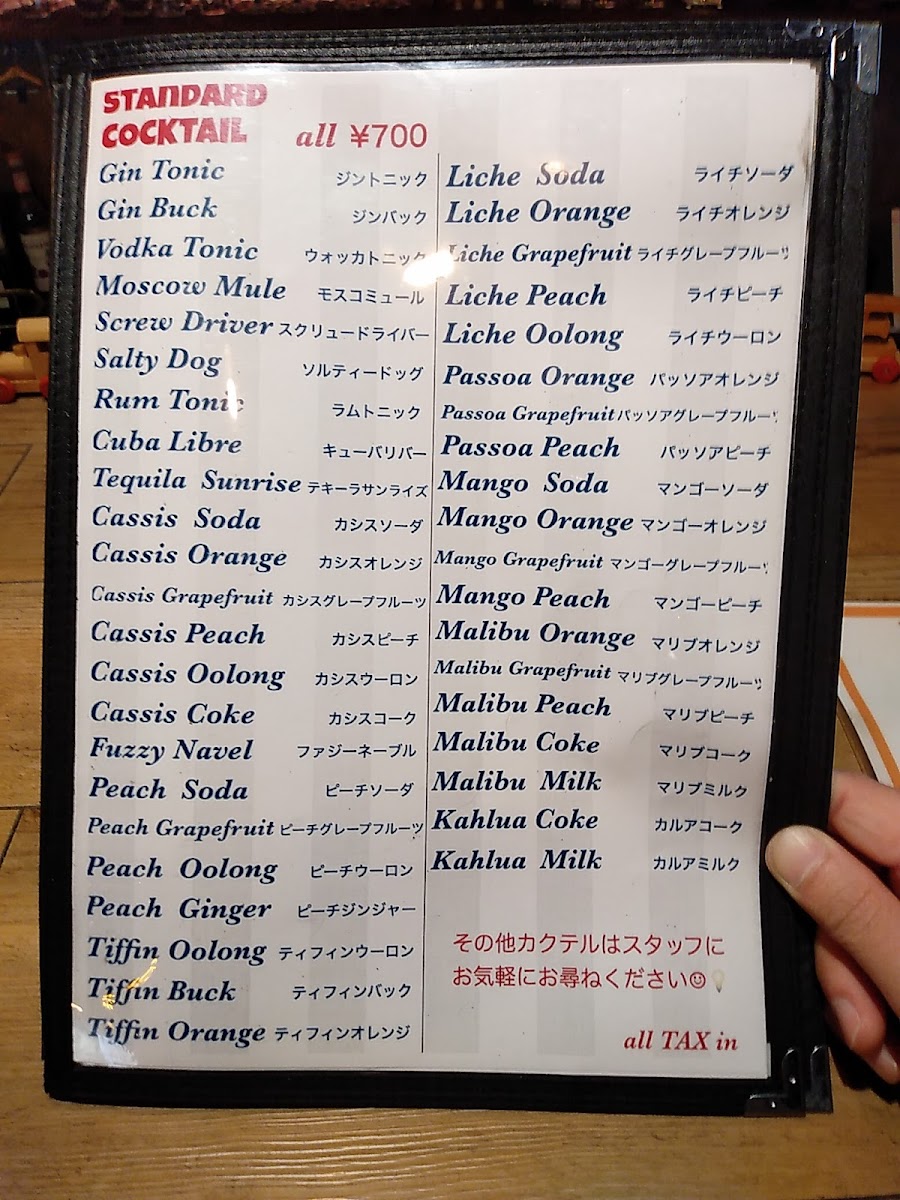 STANDARD
COCKTAIL all ¥700
Gin Tonic ジントニック
Gin Buck ジンバック
Vodka Tonic ウォッカトニック
Moscow Mule モスコミュール
Screw Driver スクリュードライバー
Salty Dog ソルティードッグ
Rum Tonic ラムトニック
Cuba Libre キューバリバー
Tequila Sunrise テキーラサンライズ
Cassis Soda カシスソーダ
Cassis Orange カシスオレンジ
Cassis Grapefruit カシスグレープフルーツ
Cassis Peach カシスピーチ
Cassis Oolong カシスウーロン
Cassis Coke カシスコーク
Fuzzy Navel ファジーネーブル
Peach Soda ピーチソーダ
Peach Grapefruit ピーチグレープフルーツ
Peach Oolong ピーチウーロン
Peach Ginger ピーチジンジャー
Tiffin Oolong ティフィンウーロン
Tiffin Buck ティフィンバック
Tiffin Orange ティフィンオレンジ
Liche Soda ライチソーダ
Liche Orange ライチオレンジ
Liche Grapefruit ライチグレープフルーツ
Liche Peach ライチピーチ
Liche Oolong ライチウーロン
Passoa Orange パッソアオレンジ
Passoa Grapefruit パッソアグレープフルーツ
Passoa Peach パッソアピーチ
Mango Soda マンゴーソーダ
Mango Orange マンゴーオレンジ
Mango Grapefruit マンゴーグレープフルーツ
Mango Peach マンゴーピーチ
Malibu Orange マリブオレンジ
Malibu Grapefruit マリブグレープフルーツ
Malibu Peach マリブピーチ
Malibu Coke マリブコーク
Malibu Milk マリブミルク
Kahlua Coke カルアコーク
Kahlua Milk カルアミルク
その他カクテルはスタッフに
お気軽にお尋ねください☺💡
all TAX in